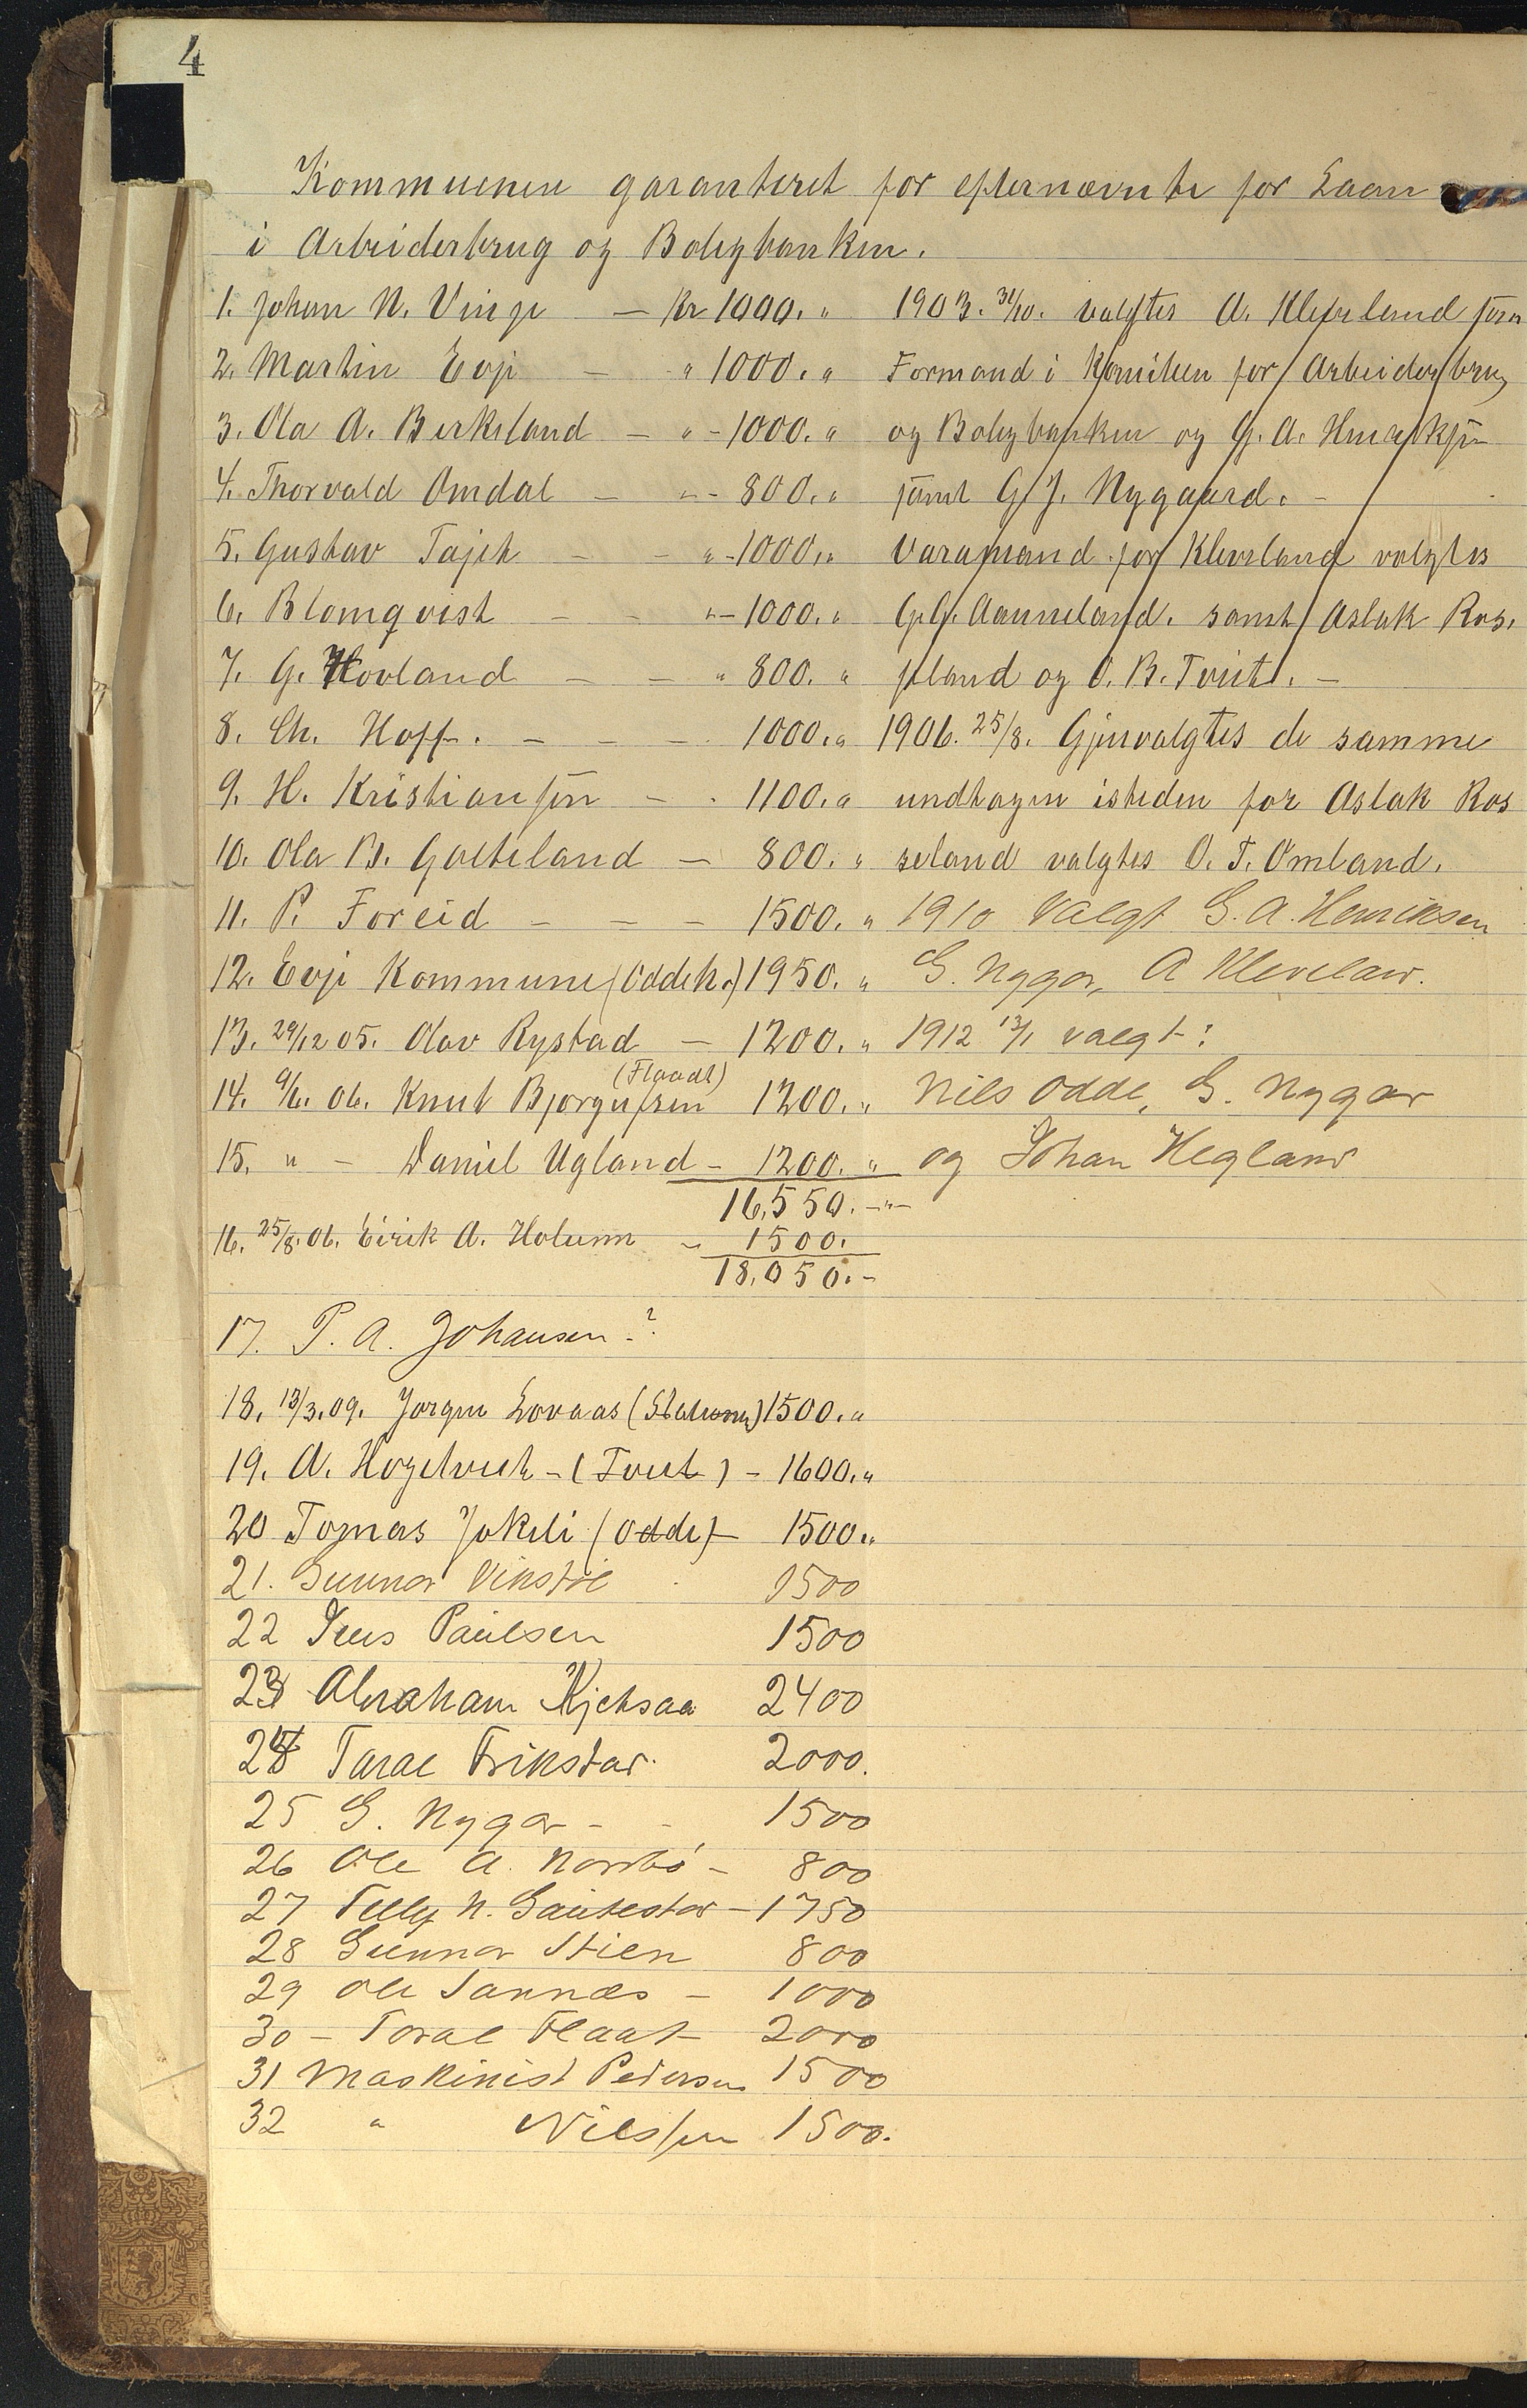 4
Kommunen garanteret for efternævnte for Laan
i Arbeiderbrug og Boligbanken.
1. Johan N. Vinje — Kr 1000. "
2. Martin Evje — " 1000. "
3. Ola A. Birkeland — " - 1000. "
4. Thorvald Omdal — " - 800. "
5. Gustav Tajet — — " - 1000. "
6. Blomqvist — — " - 1000. "
7. G. Hovland — — " 800. "
8. Ch. Hoff. — — — 1000. "
9. H. Kristiansen — . 1100. "
10. Ola B. Gauteland — 800. "
11. P. Foreid — — — 1500. "
12. Evje Kommune (Oddeh.) 1950. "
13. 29/12 05. Olav Rystad — 1200. "
14. 9/6. 06. Knut Bjorgufsen (Flaadt) 1200. "
15. " - Daniel Ugland - 1200. "
16,550. - " -
16. 25/8. 06. Eirik A. Holum - 1500.
18,050. -
17. P. A. Johansen - ?
18. 13/3. 09. Jorgen Lovaas ( ) 1500. "
19. A. - (Tveit) - 1600. "
20 Tomas Jokeli (Odde) — 1500 "
21. Gunnar Vikstøl . 1500
22 Jens Paulsen 1500
23 Abraham Kjetsaa 2400
24 Taral Frikstad. 2000.
25 G. Nygar - - 1500
26 Ole A. Norsbø - 800
27 Tellef N. Gautestad - 1750
28 Gunnar Stien 800
29 Ole Sannæs - 1000
30 - Toral Flaat - 2000
31 Maskinist Pedersen 1500
32 " Nilssen 1500.
1903. 31/10. valgtes A. Klepeland som
Formand i Komiteen for Arbeiderbrug
og Boligbanken og G. A.
samt G. J. Nygaard. -
Varamand for Klevland valgtes
G. G. Aanneland. samt Aslak Ros.
seland og O. B. Tveite. -
1906. 25/8. Gjenvalgtes de samme
undtagen isteden for Aslak Ros
seland valgtes O. T. Omland.
1910 Valgt G. A. Henriksen
G. Nygar, A Kleveland.
1912 13/1 valgt:
Nils Odde, G. Nygar
og Johan Hegland